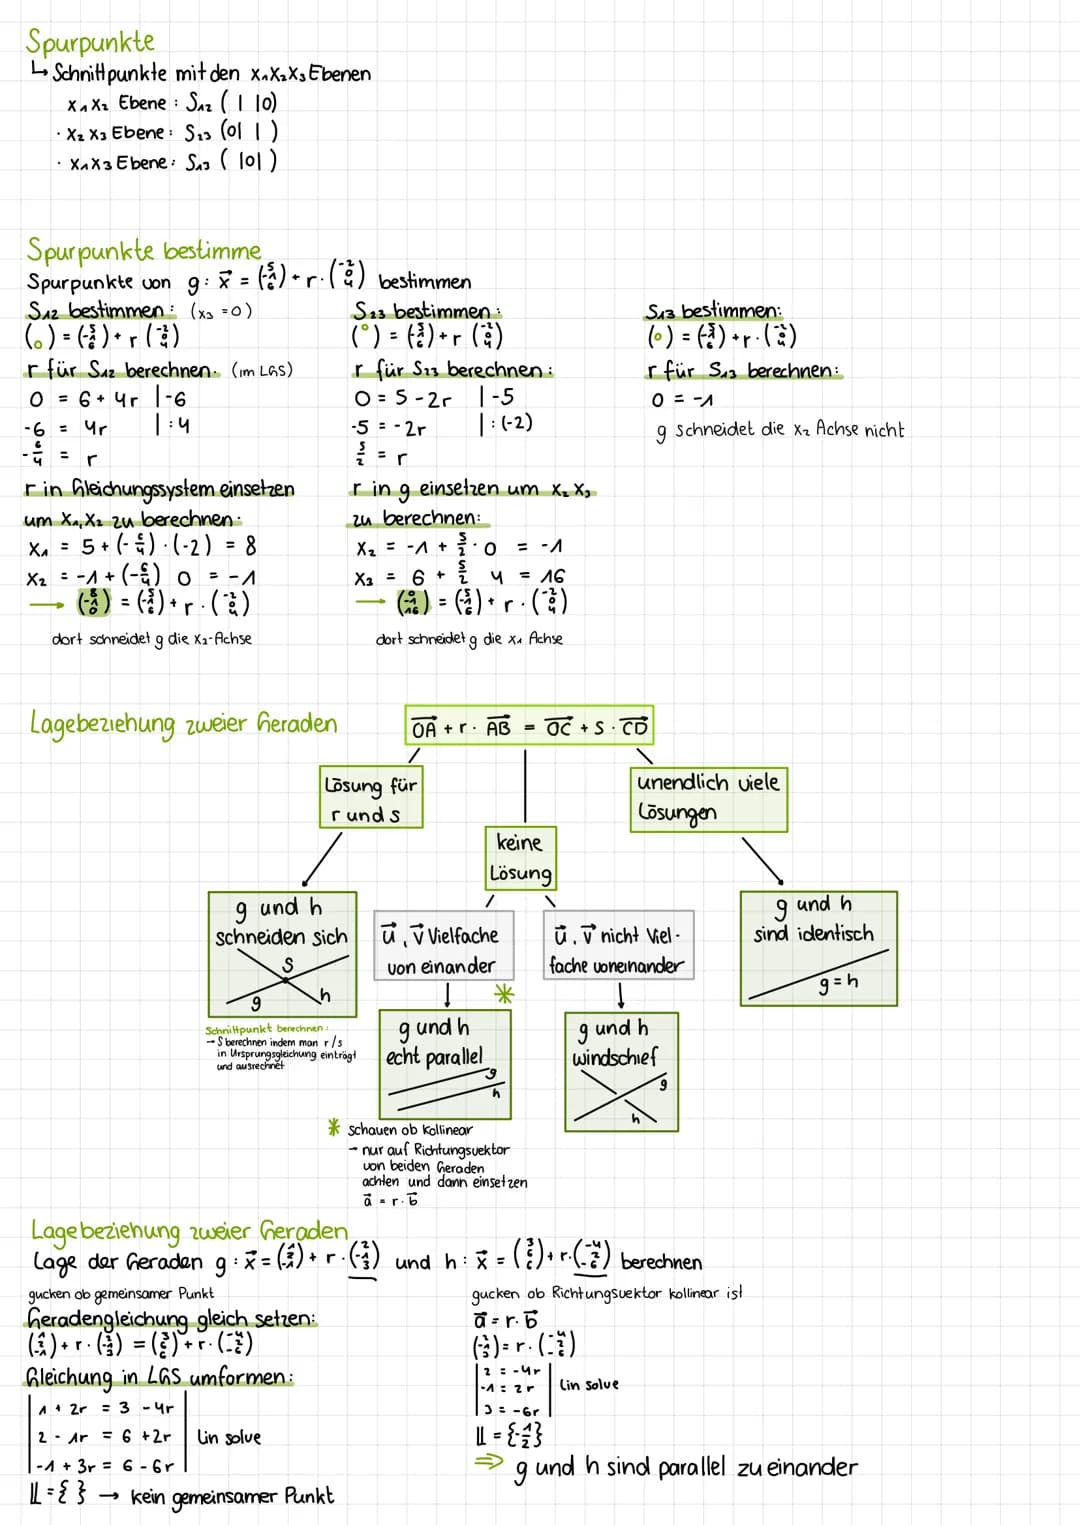 Spurpunkte
↳ Schnittpunkte mit den x₁x₂x₃ Ebenen
x₁x₂ Ebene: S₁₂ ( | |0)
· x₂x₃ Ebene: S₂₃ (0| | )
· x₁x₃ Ebene: S₁₃ ( |0| )
Spurpunkte bestimme
Spurpunkte von g: x⃗ = (5 -1 6) + r · (-2 0 4) bestimmen
S₁₂ bestimmen: (x₃ = 0)
( 0) = (5 -1 6) + r (-2 0 4)
r für S₁₂ berechnen: (im LGS)
0 = 6 + 4r |-6
-6 = 4r |:4
-6/4 = r
r in Gleichungssystem einsetzen
um x₁, x₂ zu berechnen:
x₁ = 5 + (-6/4) · (-2) = 8
x₂ = -1 + (-6/4) 0 = -1
→ (8 -1 0) = (5 -1 6) + r · (-2 0 4)
dort schneidet g die x₃-Achse
S₂₃ bestimmen:
(0 ) = (5 -1 6) + r (-2 0 4)
r für S₂₃ berechnen:
0 = 5 - 2r |-5
-5 = -2r |:(-2)
5/2 = r
r in g einsetzen um x₂ x₃
zu berechnen:
x₂ = -1 + 5/2 · 0 = -1
x₃ = 6 + 5/2 4 = 16
→ (0 -1 16) = (5 -1 6) + r · (-2 0 4)
dort schneidet g die x₁ Achse
S₁₃ bestimmen:
( 0 ) = (5 -1 6) + r · (-2 0 4)
r für S₁₃ berechnen:
0 = -1
g schneidet die x₂ Achse nicht
Lagebeziehung zweier Geraden
OA + r · AB = OC + s · CD
Lösung für
r und s
keine
Lösung
unendlich viele
Lösungen
g und h
schneiden sich
S
g
h
u⃗, v⃗ Vielfache
von einander
u⃗, v⃗ nicht Viel-
fache voneinander
g und h
sind identisch
g = h
Schnittpunkt berechnen:
→ S berechnen indem man r/s
in Ursprungsgleichung einträgt
und ausrechnet
*
g und h
echt parallel
g
h
g und h
windschief
g
h
* schauen ob kollinear
→ nur auf Richtungsvektor
von beiden Geraden
achten und dann einsetzen
a⃗ = r · b⃗
Lagebeziehung zweier Geraden
Lage der Geraden g: x⃗ = (1 2 -1) + r · (2 -1 3) und h: x⃗ = (3 6 6) + r · (-4 2 -6) berechnen
gucken ob gemeinsamer Punkt
Geradengleichung gleich setzen:
(1 2 -1) + r · (2 -1 3) = (3 6 6) + r · (-4 2 -6)
Gleichung in LGS umformen:
1 + 2r = 3 - 4r
2 - 1r = 6 + 2r | lin solve
-1 + 3r = 6 - 6r
𝕃 = { } → kein gemeinsamer Punkt
gucken ob Richtungsvektor kollinear ist
a⃗ = r · b⃗
(2 -1 3) = r · (-4 2 -6)
2 = -4r
-1 = 2r | lin solve
3 = -6r
𝕃 = {-1/2}
⇒ g und h sind parallel zu einander